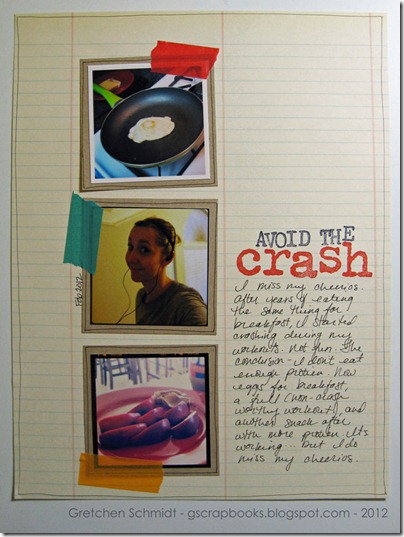 AVOID THE
crash
I miss my cheerios.
After years of eating
the same thing for
breakfast, I started
crashing during my
workouts. Not fun. The
conclusion - I don't eat
enough protein. Now
eggs for breakfast,
a full (non-crash
worthy workout), and
another snack after
with more protein. It's
working... but I do
miss my cheerios.
Feb 2012
Gretchen Schmidt - gscrapbooks.blogspot.com - 2012